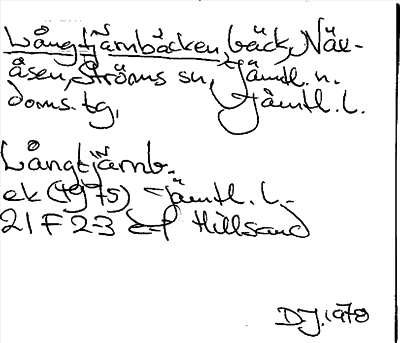 Långtjärnbäcken, bäck, Näs-
åsen, Ströms sn, Jämtl. n.
doms. tg, Jämtl. l.
Långtjärnb.
ek (1975) Jämtl. l.
21 F 2-3 Hillsand
DJ. 1978